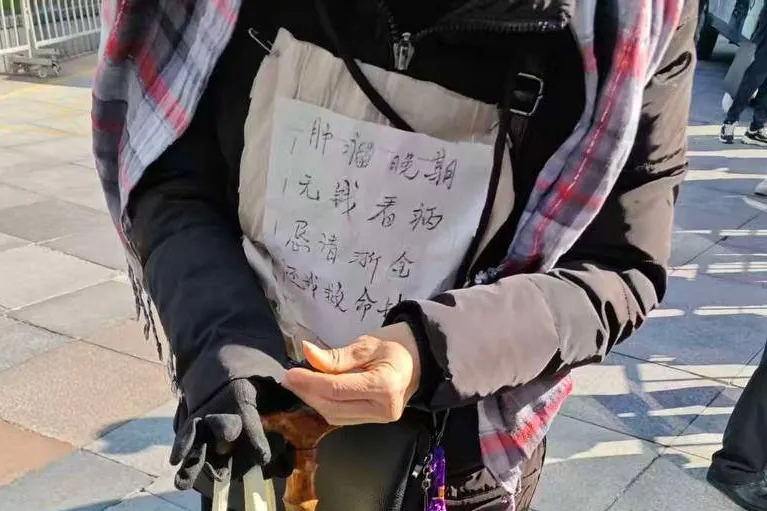 肿瘤晚期
无钱看病
恳请浙金
还我救命